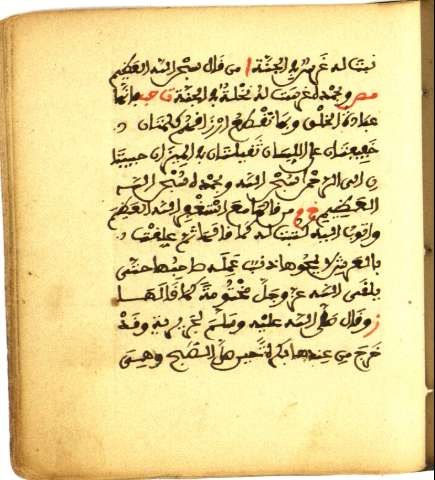 نبت له غرس في الجنة ا من قال سبحن الله العظيم
مص وبحمده غرست له نخلة في الجنة ت حب فإنها
عبادة الخلق وبها تقطع أرزاقهم كلمتان
خفيفتان على اللسان ثقيلتان في الميزان حبيبتا
ن الى الرحمن سبحن الله وبحمده سبحن الله
العظيم خ م من قالها مع استغفر الله العظيم
واتوب اليه كتبت له كما قالها ثم علقت
بالعرش لا يمحوها ذنب عمله صاحبها حتى
يلقى الله عز وجل مختومة كما قالها
ز وقال صلى الله عليه وسلم لجويرية وقد
خرج من عندها بكرة حين صلى الصبح وهي